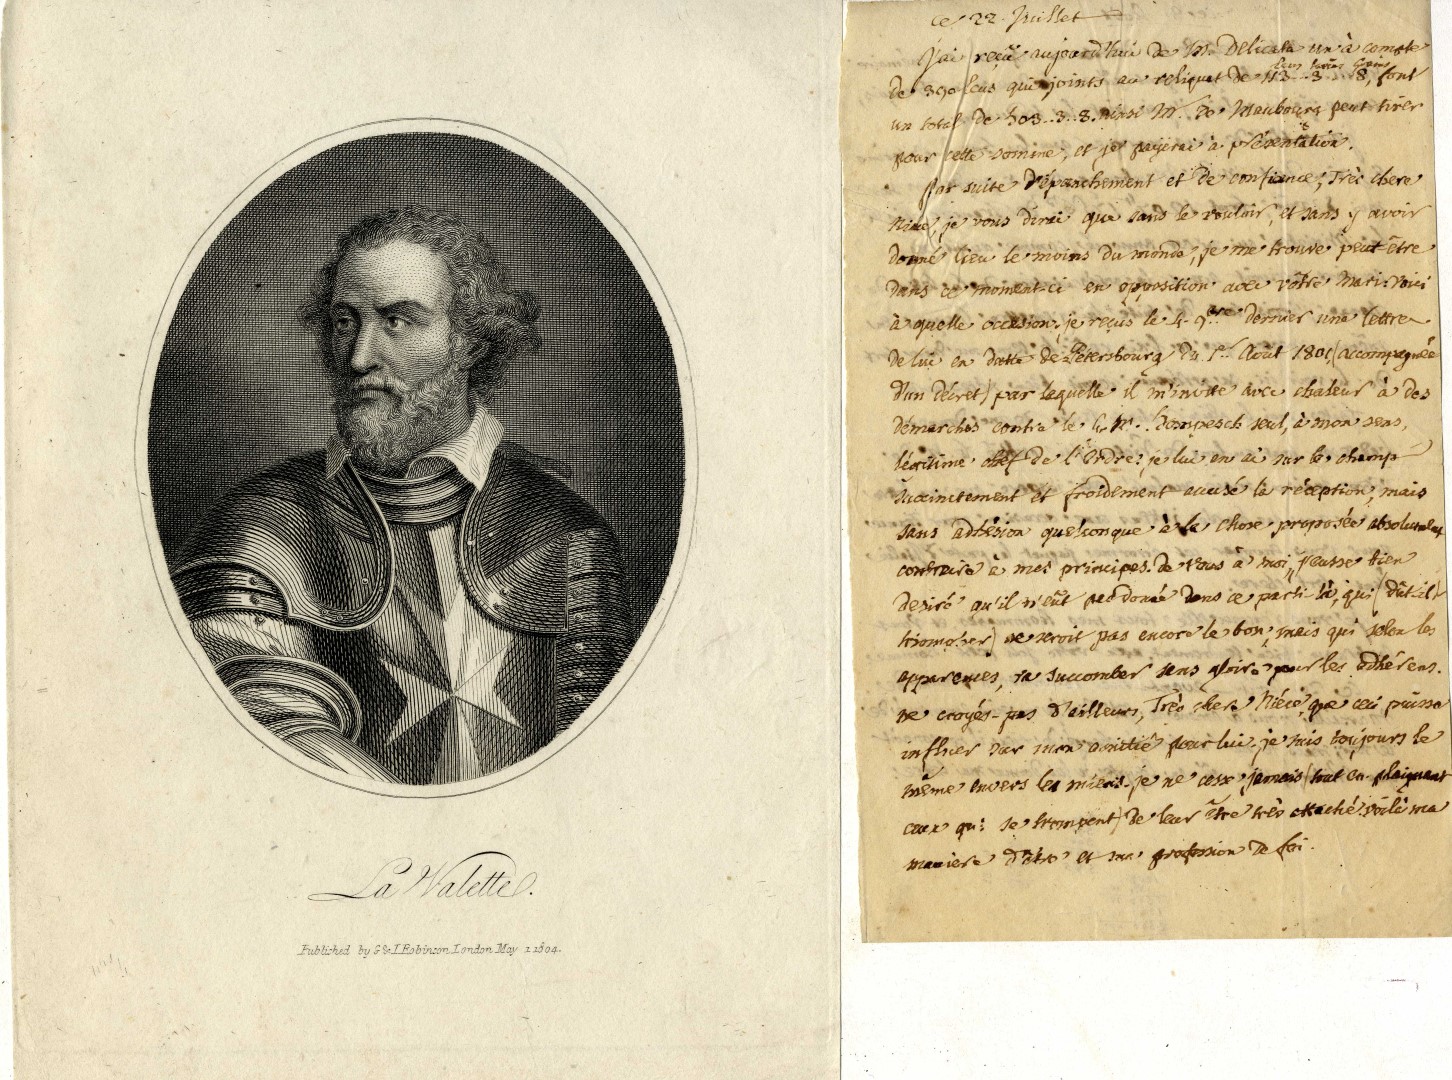 La Valette.
Published by G & I Robinson London May 1 1804.
ce 22 Juillet
j'ai reçû aujourd'hui de Mr. Delicata un à compte
de 390 Ecus qui joints au reliquat de 113..3..8, font
Ecus tarins Grains
un total de 503..3..8. ainsi Mr. de Maubourg peut tirer
pour cette somme, et je payerai à présentation.
par suite d'épanchement et de confiance, Très chere
Niece, je vous dirai que sans le vouloir, et sans y avoir
donné lieu le moins du monde, je me trouve peut-être
dans ce moment-ci en opposition avec vôtre Mari. voici
à quelle occasion. je reçus le 4. 9bre dernier une lettre
de lui en datte de Petersbourg du 1er Août 1801 (accompagnée
d'un décret) par laquelle il m'invite avec chaleur à des
démarches contre le G. M. hompesch seul, à mon sens,
légitime chef de l'Ordre: je lui en ai sur le champ
succinctement et froidement accusé la réception, mais
sans adhésion quelconque à la chose proposée absolument
contraire à mes principes. de vous à moi, j'eusse bien
desiré qu'il n'eût pas donné dans ce parti-là, qui (dût-il
triompher) ne seroit pas encore le bon, mais qui selon les
apparences, va succomber sans gloire pour les adhérens.
ne croyés-pas d'ailleurs, Très chere Niéce, que ceci puisse
influer sur mon amitié pour lui. je suis toujours le
même envers les miens. je ne cesse jamais (tout en plaignant
ceux qui se trompent) de leur être très attaché. voilà ma
maniere d'être et ma profession de foi.